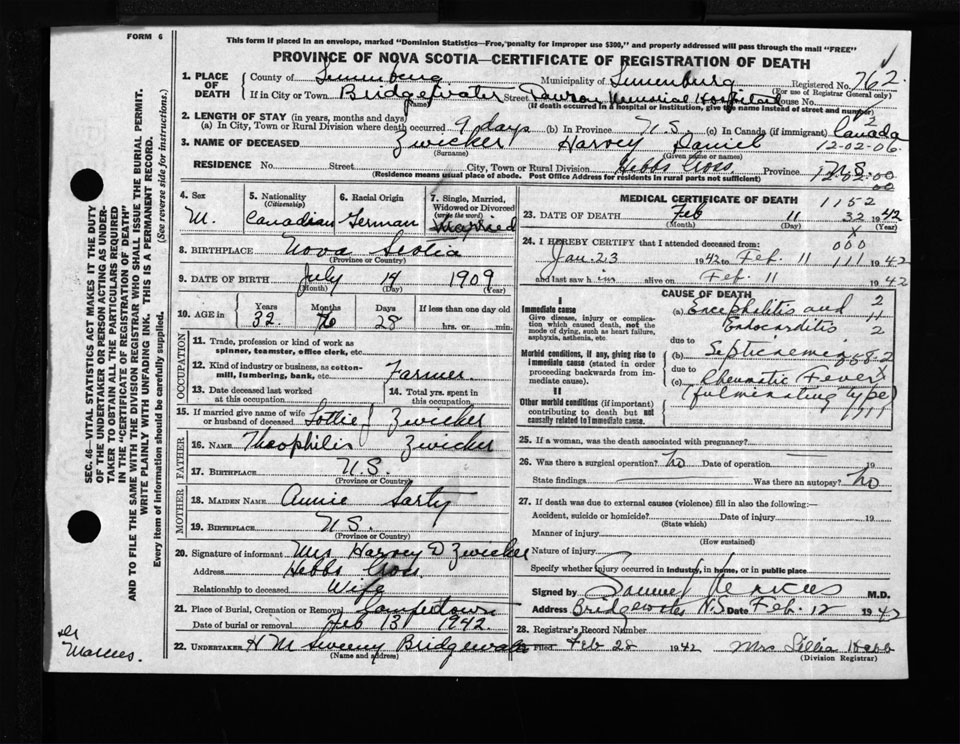 FORM 6
This form if placed in an envelope, marked "Dominion Statistics—Free, penalty for improper use $300," and properly addressed will pass through the mail "FREE"
PROVINCE OF NOVA SCOTIA—CERTIFICATE OF REGISTRATION OF DEATH
1. PLACE OF DEATH
County of Lunenburg Municipality of Lunenburg Registered No. 762
(For use of Registrar General only)
If in City or Town Bridgewater Street Dawson Memorial Hospital House No.
(Name) (If death occurred in a hospital or institution, give the name instead of street and number)
2. LENGTH OF STAY (in years, months and days)
(a) In City, Town or Rural Division where death occurred 9 days (b) In Province N.S. (c) In Canada (if immigrant) Canada
12-02-06
3. NAME OF DECEASED Zwicker Harvey Daniel
(Surname) (Given name or names)
RESIDENCE No. Street City, Town or Rural Division Hebbs Cross Province N.S.
(Residence means usual place of abode. Post Office Address for residents in rural parts not sufficient)
4. Sex M.
5. Nationality (Citizenship) Canadian
6. Racial Origin German
7. Single, Married, Widowed or Divorced (write the word) Married
8. BIRTHPLACE Nova Scotia
(Province or Country)
9. DATE OF BIRTH July 14 1909
(Month) (Day) (Year)
10. AGE in Years 32 Months Days 28 If less than one day old
hrs. or min.
OCCUPATION
11. Trade, profession or kind of work as spinner, teamster, office clerk, etc.
12. Kind of industry or business, as cotton-mill, lumbering, bank, etc. Farmer
13. Date deceased last worked at this occupation
14. Total yrs. spent in this occupation
15. If married give name of wife or husband of deceased Lottie J Zwicker
FATHER
16. NAME Theophilis Zwicker
17. BIRTHPLACE N.S.
(Province or Country)
MOTHER
18. MAIDEN NAME Annie Sarty
19. BIRTHPLACE N.S.
(Province or Country)
20. Signature of informant Mrs Harvey D Zwicker
Address Hebbs Cross.
Relationship to deceased Wife
21. Place of Burial, Cremation or Removal
Date of burial or removal Feb 13 1942.
22. UNDERTAKER H M Sweeny Bridgewater
(Name and address)
MEDICAL CERTIFICATE OF DEATH 1152
23. DATE OF DEATH Feb 11 32 1942
(Month) (Day) (Year)
24. I HEREBY CERTIFY that I attended deceased from: 000
Jan. 23 1942 to Feb. 11 111 1942
and last saw him alive on Feb. 11 1942
CAUSE OF DEATH
I
Immediate cause
Give disease, injury or complication which caused death, not the mode of dying, such as heart failure, asphyxia, asthenia, etc.
(a) Encephalitis and Endocarditis
due to
Morbid conditions, if any, giving rise to immediate cause (stated in order proceeding backwards from immediate cause).
(b) Septicaemia
due to
(c) Rheumatic Fever (fulminating type)
II
Other morbid conditions (if important) contributing to death but not causally related to immediate cause.
25. If a woman, was the death associated with pregnancy?
26. Was there a surgical operation? No Date of operation 19
State findings Was there an autopsy? No
27. If death was due to external causes (violence) fill in also the following:
Accident, suicide or homicide? Date of injury 19
(State which)
Manner of injury
(How sustained)
Nature of injury
Specify whether injury occurred in industry, in home, or in public place
Signed by Samuel Marcus M.D.
Address Bridgewater N.S Date Feb. 12 1942
28. Registrar's Record Number
Filed Feb 28 1942 Mrs Lillia Hebb
(Division Registrar)
SEC. 46—VITAL STATISTICS ACT MAKES IT THE DUTY
OF THE UNDERTAKER OR PERSON ACTING AS UNDER-
TAKER TO OBTAIN ALL THE PARTICULARS REQUIRED
IN THE "CERTIFICATE OF REGISTRATION OF DEATH"
AND TO FILE THE SAME WITH THE DIVISION REGISTRAR WHO SHALL ISSUE THE BURIAL PERMIT.
WRITE PLAINLY WITH UNFADING INK. THIS IS A PERMANENT RECORD.
Every item of Information should be carefully supplied. (See reverse side for instructions.)
Dr Marcus.